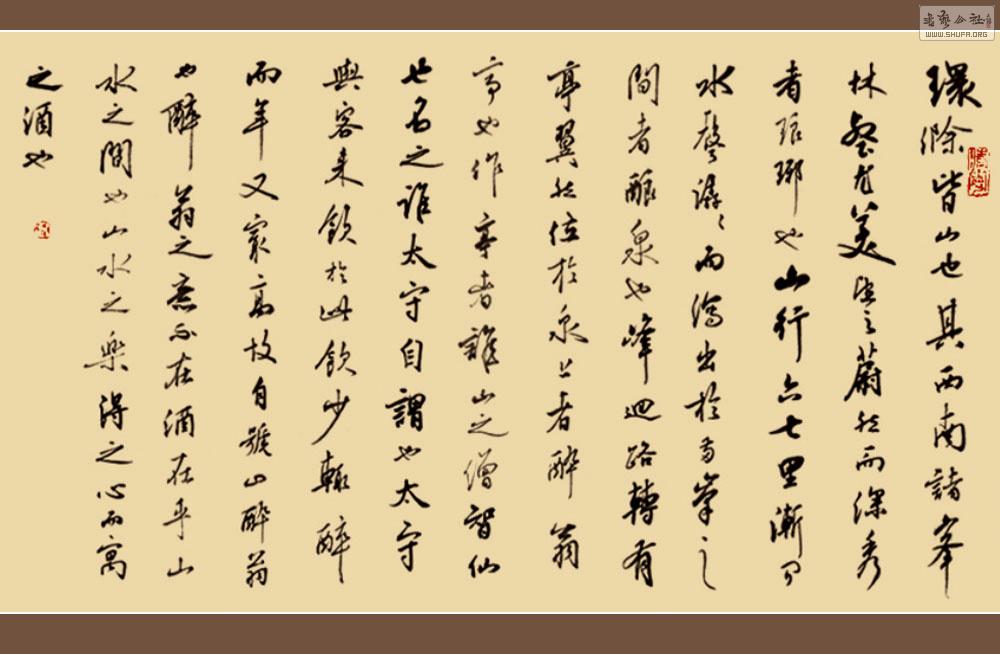 環滁皆山也其西南諸峯
林壑尤美望之蔚然而深秀
者琅琊也山行六七里漸聞
水聲潺々而瀉出於兩峯之
間者釀泉也峰迴路轉有
亭翼然位於泉上者醉翁
亭也作亭者誰山之僧智仙
也名之誰太守自謂也太守
與客來飲於此飲少輒醉
而年又最高故自號曰醉翁
也醉翁之意不在酒在乎山
水之間也山水之樂得之心而寓
之酒也
WWW.SHUFA.ORG